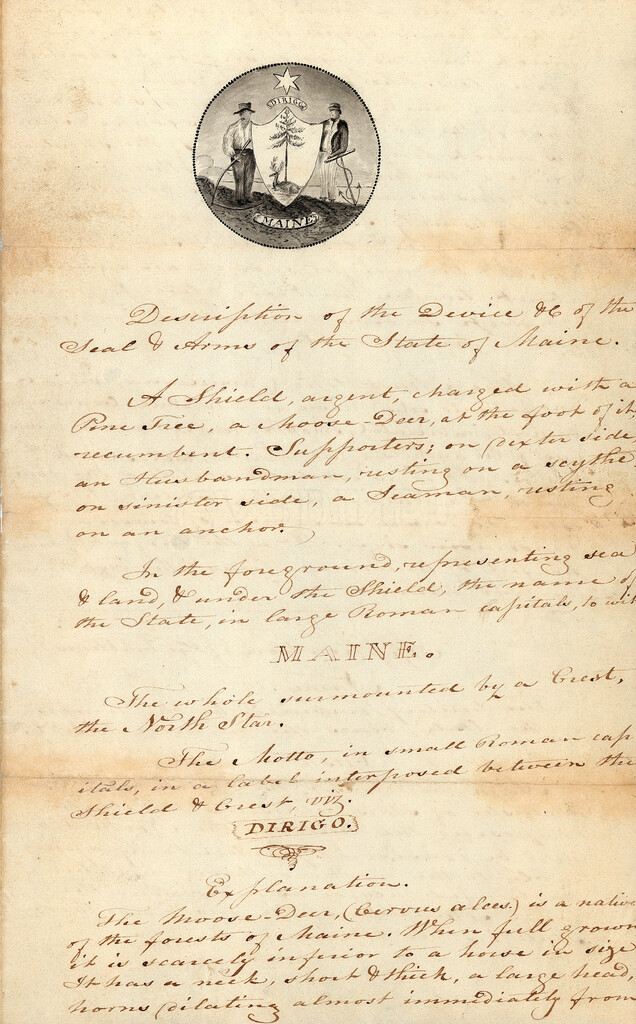 DIRIGO
MAINE
Description of the Device &c of the
Seal & Arms of the State of Maine.
A Shield, argent, charged with a
Pine Tree, a Moose-Deer, at the foot of it,
recumbent. Supporters; on dexter side,
an Husbandman, resting on a scythe
on sinister side, a Seaman, resting
on an anchor.
In the foreground, representing sea
& land, & under the Shield, the name of
the State, in large Roman capitals, to wit
MAINE.
The whole surmounted by a Crest,
the North Star.
The Motto, in small Roman cap
itals, in a label interposed between the
Shield & Crest, viz.
DIRIGO.
Explanation.
The Moose-Deer, (Cervus alces.) is a native
of the forests of Maine. When full grown
it is scarcely inferior to a horse in size
It has a neck, short & thick, a large head,
horns dilating almost immediately from